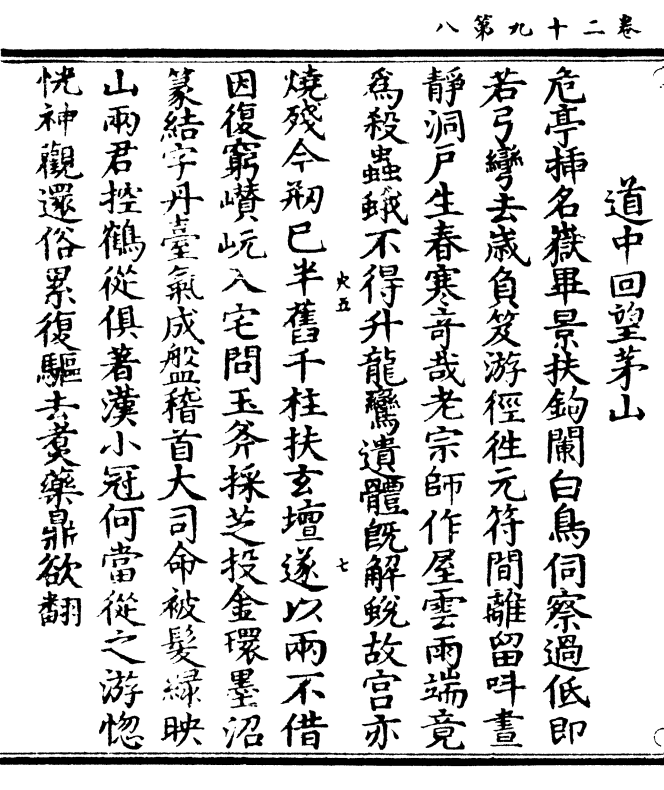 卷二十九第八
道中回望茅山
危亭揷名嶽畢景扶鉤闌白鳥伺察過低即
若弓彎去歲負笈游徑徃元符間離留呌晝
靜洞戸生春寒竒哉老宗師作屋雲雨端竟
爲殺蟲蛾不得升龍鸞遺體旣解蛻故宫亦
火五
七
燒殘今剏已半舊千柱扶玄壇遂以兩不借
因復窮巑岏入宅問玉斧採芝投金環墨沼
篆結字丹臺氣成盤稽首大司命被髮緑映
山兩君控鶴從俱著漢小冠何當從之游惚
恍神觀還俗累復驅去煑藥鼎欲翻